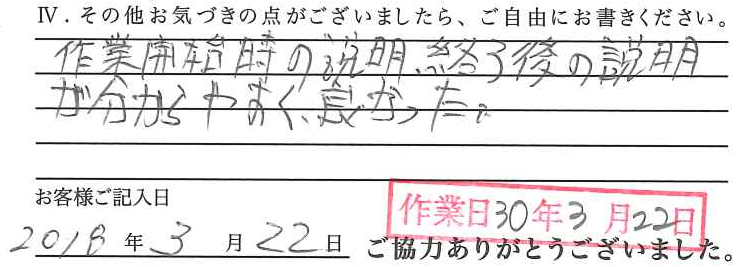 Ⅳ．その他お気づきの点がございましたら、ご自由にお書きください。
作業開始時の説明、終了後の説明
が分からやすく、良かった。
お客様ご記入日
作業日30年3月22日
2018年3月22日
ご協力ありがとうございました。